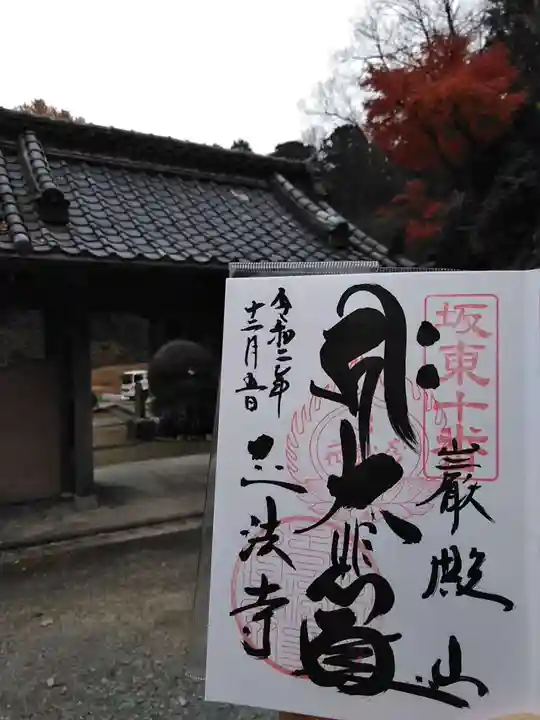 坂東十番
巌殿山
大悲殿
正法寺
令和二年
十二月五日